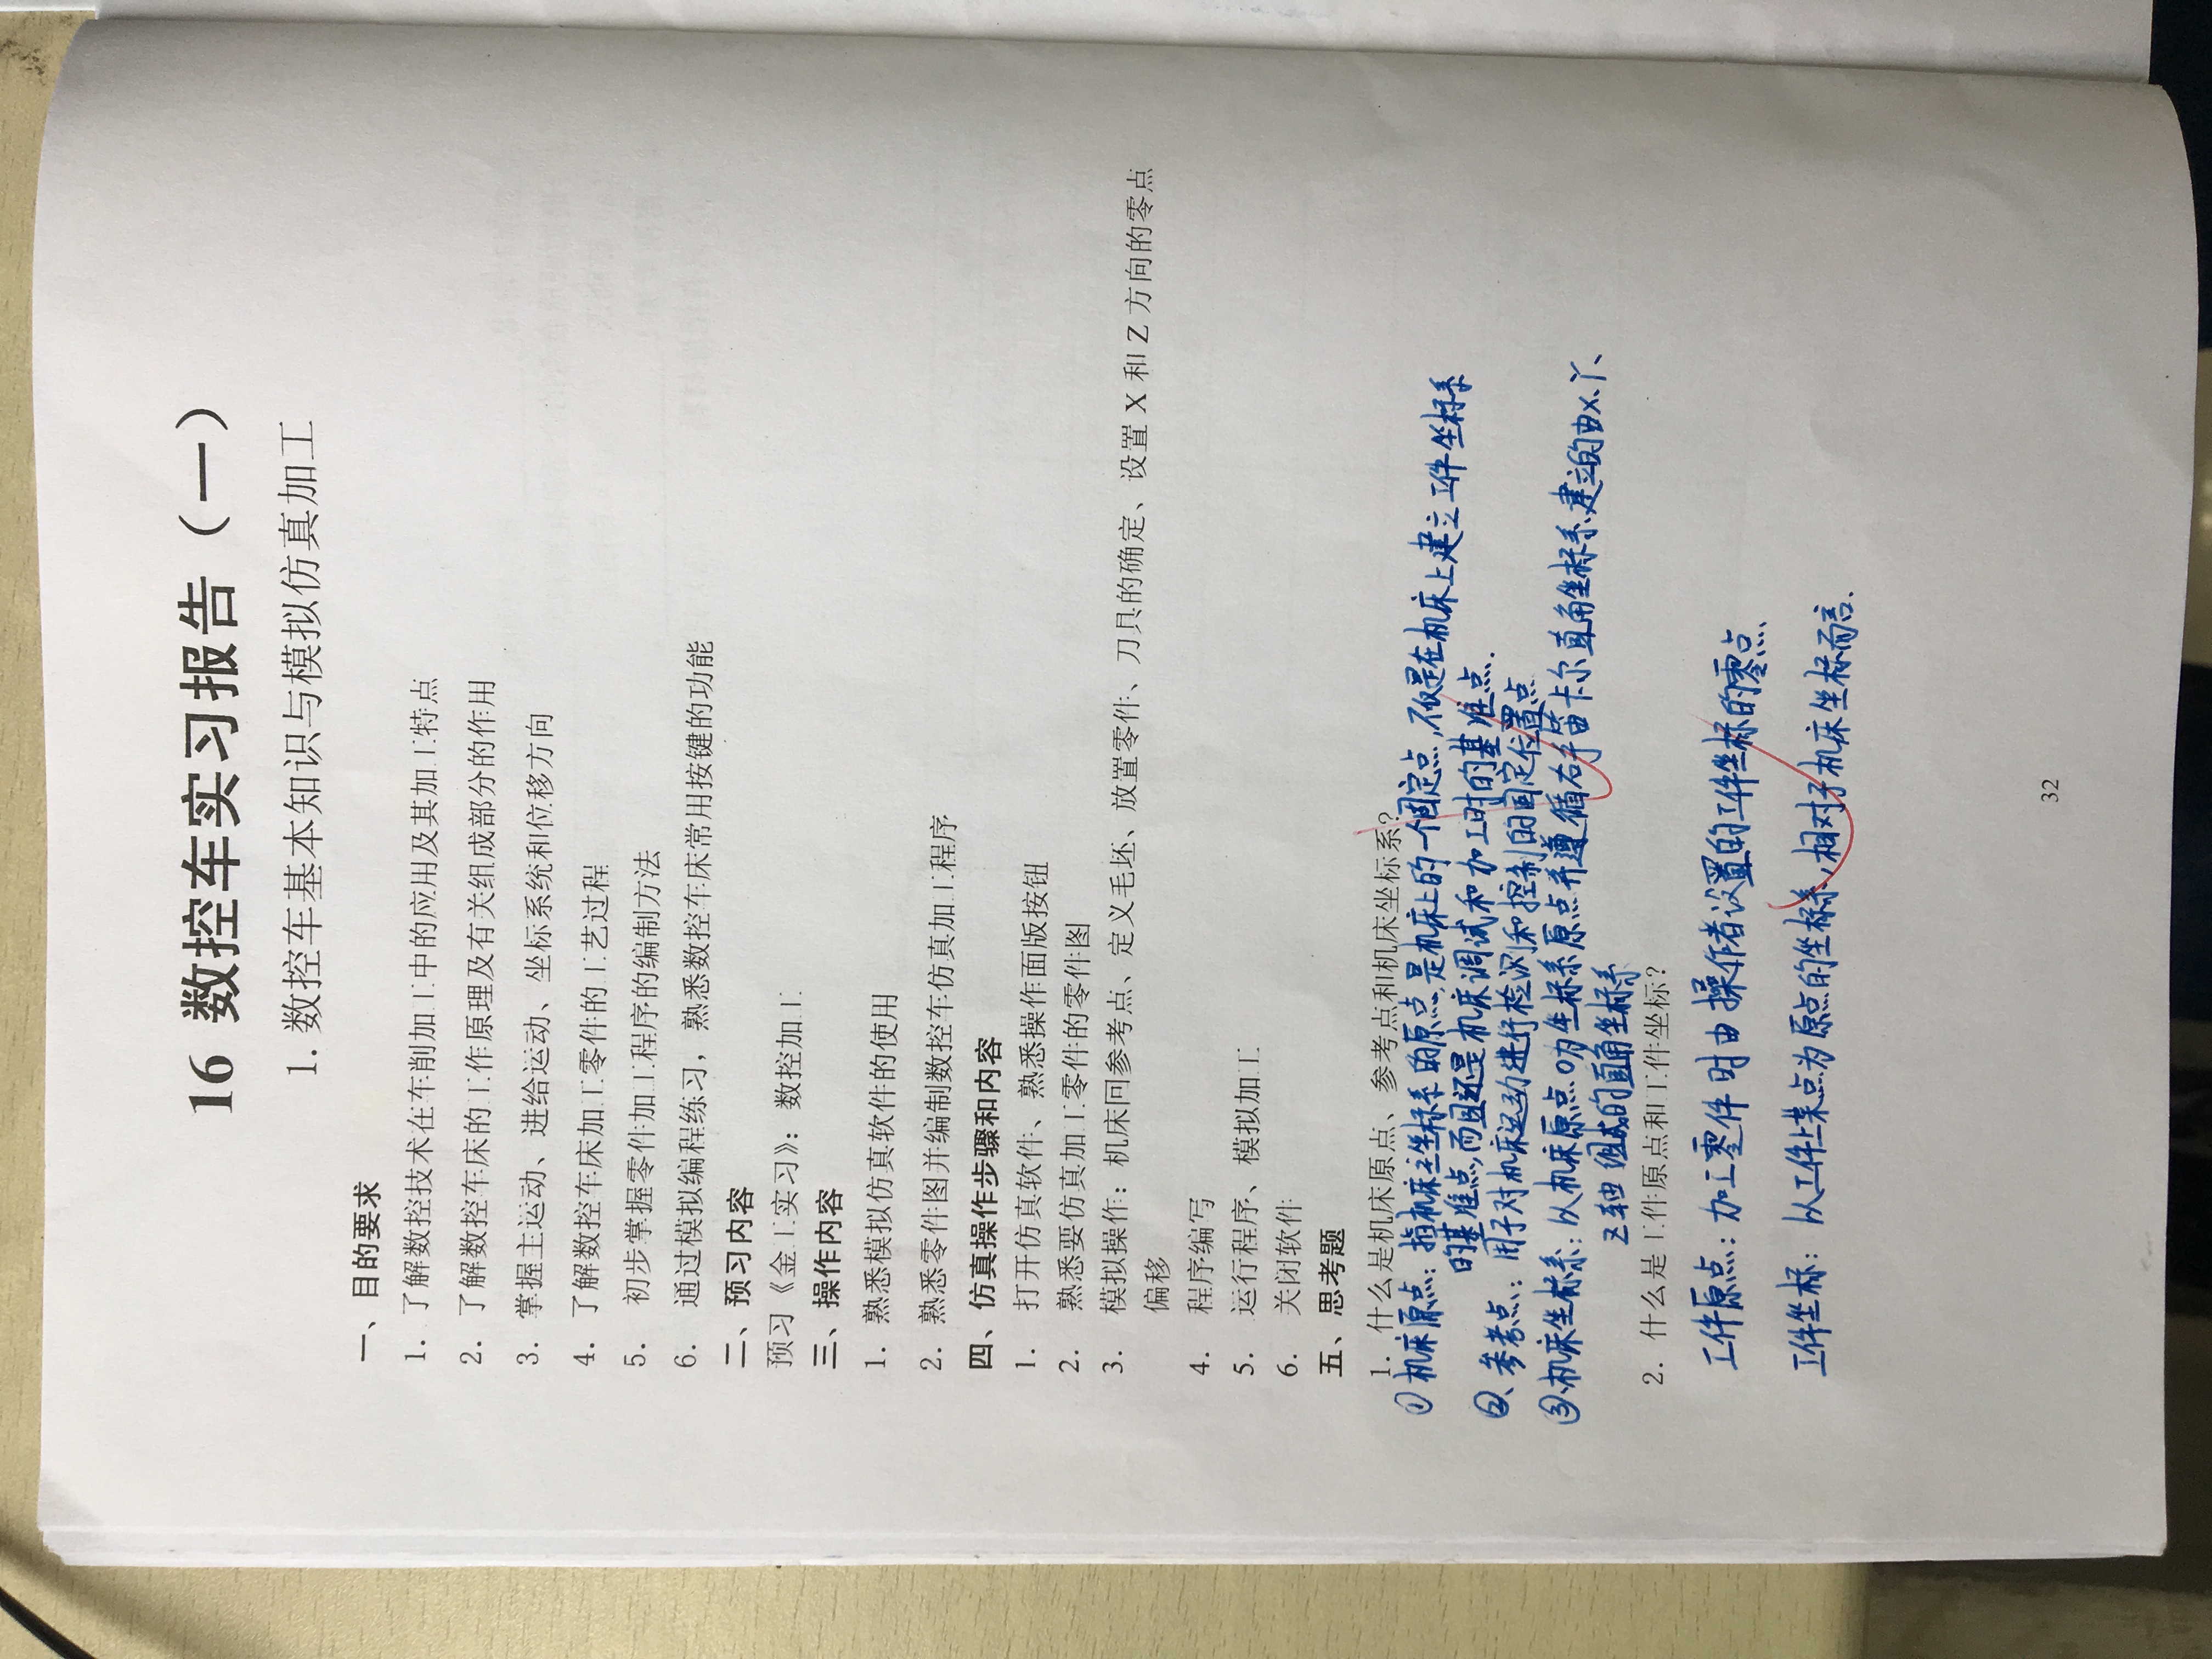 16 数控车实习报告（一）
1. 数控车基本知识与模拟仿真加工
一、目的要求
1. 了解数控技术在车削加工中的应用及其加工特点
2. 了解数控车床的工作原理及有关组成部分的作用
3. 掌握主运动、进给运动、坐标系统和位移方向
4. 了解数控车床加工零件的工艺过程
5. 初步掌握零件加工程序的编制方法
6. 通过模拟编程练习，熟悉数控车床常用按键的功能
二、预习内容
预习《金工实习》：数控加工
三、操作内容
1. 熟悉模拟仿真软件的使用
2. 熟悉零件图并编制数控车仿真加工程序
四、仿真操作步骤和内容
1. 打开仿真软件、熟悉操作面版按钮
2. 熟悉要仿真加工零件的零件图
3. 模拟操作：机床回参考点、定义毛坯、放置零件、刀具的确定、设置 X 和 Z 方向的零点
偏移
4. 程序编写
5. 运行程序、模拟加工
6. 关闭软件
五、思考题
1. 什么是机床原点、参考点和机床坐标系？
① 机床原点：指机床之坐标系的原点，是机床上的一个固定点，不仅是在机床上建立工件坐标系
的基准点，而且还是机床调试和加工时的基准点.
②、参考点：用于对机床运动进行检测和控制的固定位置点
③、机床坐标系：以机床原点O为坐标系原点并遵循右手笛卡尔直角坐标系建立的由X、Y、
Z轴组成的直角坐标系
2. 什么是工件原点和工件坐标？
工件原点：加工零件时由操作者设置的工件坐标的零点
工件坐标：以工件上某点为原点的坐标系，相对于机床坐标而言.
32